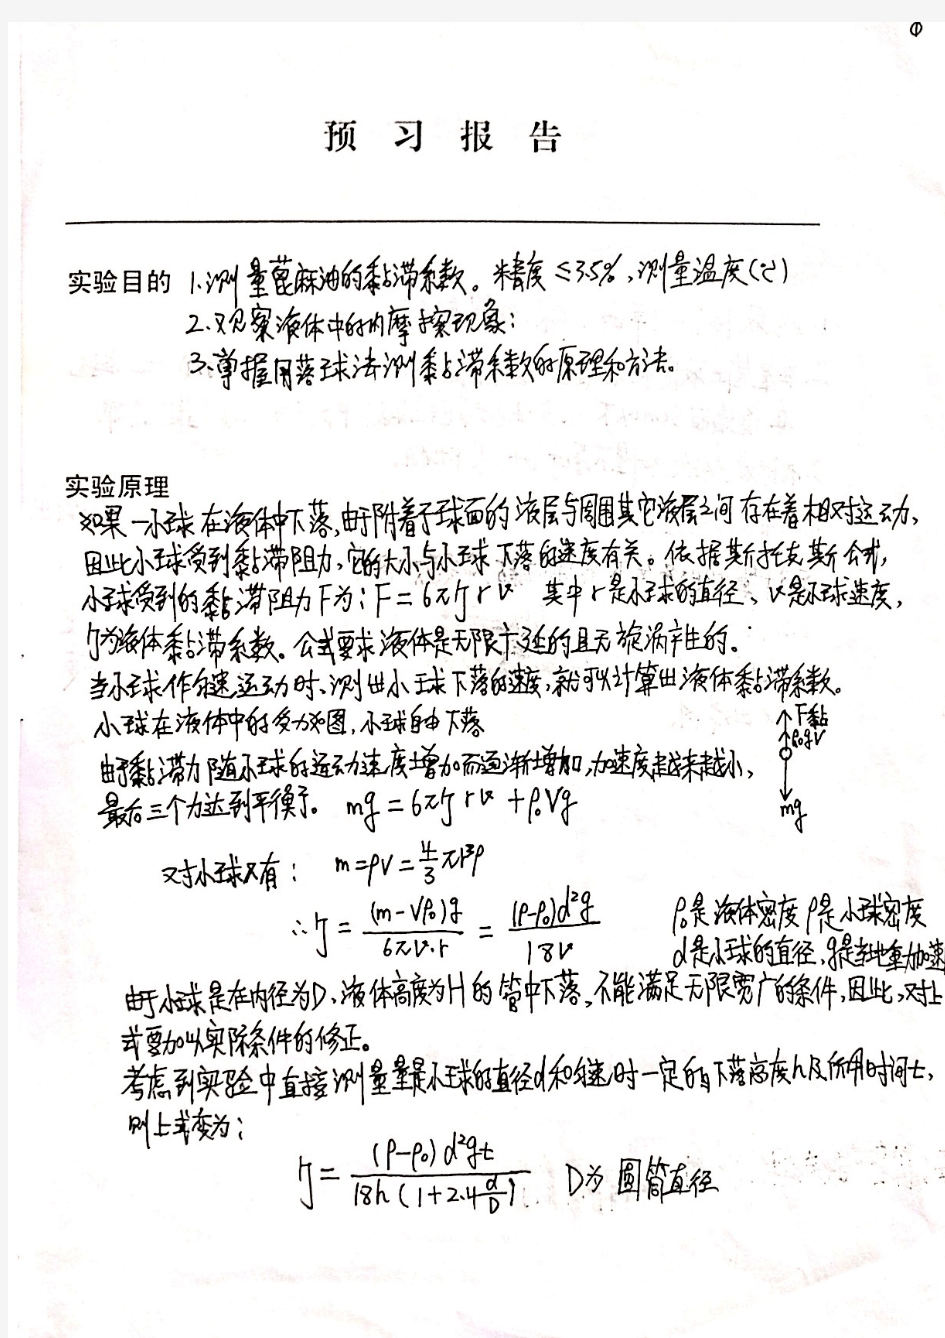 ①
预习报告
实验目的 1.测量蓖麻油的黏滞系数。精度≤3.5%,测量温度(℃)
2.观察液体中的内摩擦现象;
3.掌握用落球法测黏滞系数的原理和方法。
实验原理
如果一小球在液体中下落,由于附着于球面的液层与周围其它液层之间存在着相对运动,
因此小球受到黏滞阻力,它的大小与小球下落的速度有关。依据斯托克斯公式,
小球受到的黏滞阻力F为:F=6πηrv 其中r是小球的直径、v是小球速度,
η为液体黏滞系数。公式要求液体是无限广延的且无旋涡产生的。
当小球作匀速运动时,测出小球下落的速度,就可以计算出液体黏滞系数。
小球在液体中的受力如图,小球自由下落
↑F黏
↑ρ₀gV
由于黏滞力随小球的运动速度增加而逐渐增加,加速度越来越小,
最后三个力达到平衡了。 mg=6πηrv+ρ₀Vg
mg
对小球又有: m=ρV=4/3πr³ρ
∴η=(m-Vρ₀)g/6πv·r=(ρ-ρ₀)d²g/18v ρ₀是液体密度 ρ是小球密度
d是小球的直径,g是当地重加速
由于小球是在内径为D、液体高度为H的管中下落,不能满足无限宽广的条件,因此,对上
式要加以实际条件的修正。
考虑到实验中直接测量量是小球的直径d和匀速时一定的下落高度h及所用时间t,
则上式变为:
η=(ρ-ρ₀)d²gt/18h(1+2.4d/D) D为圆筒直径